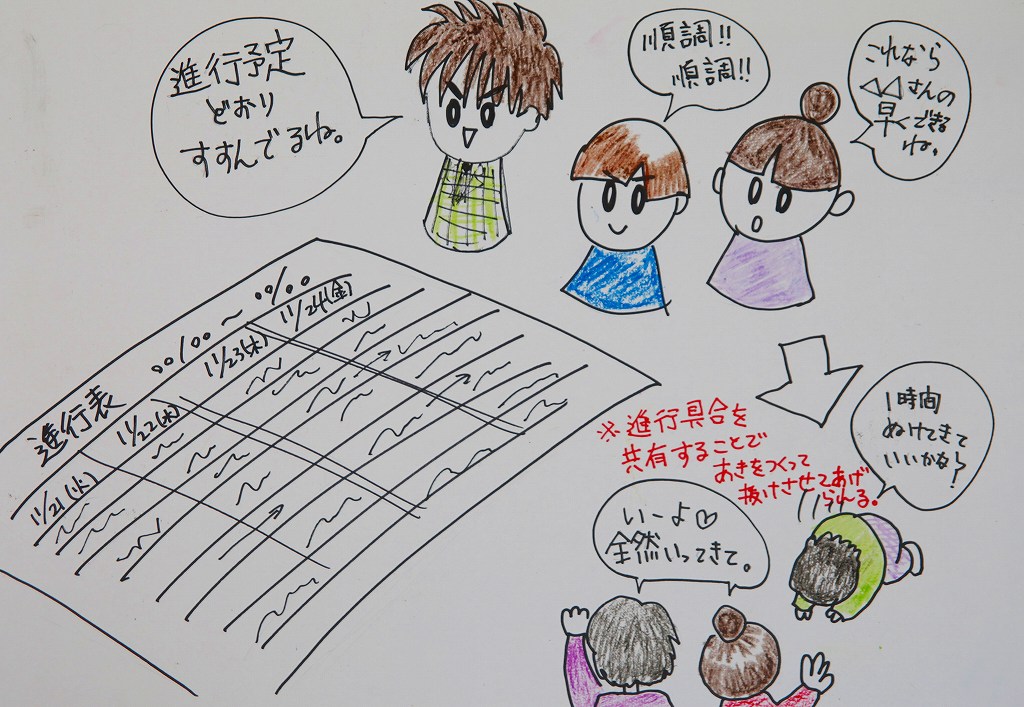 進行予定
どおり
すすんでるね。
順調!!
順調!!
これなら
さんの
早くできる
ね。
進行表 00/00 ~ 00/00
11/21(火)
11/22(水)
11/23(木)
11/24(金)
※進行具合を
共有することで
あきをつくって
抜けさせてあげ
られる。
1時間
ぬけてきて
いいかな?
いーよ♡
全然いってきて。